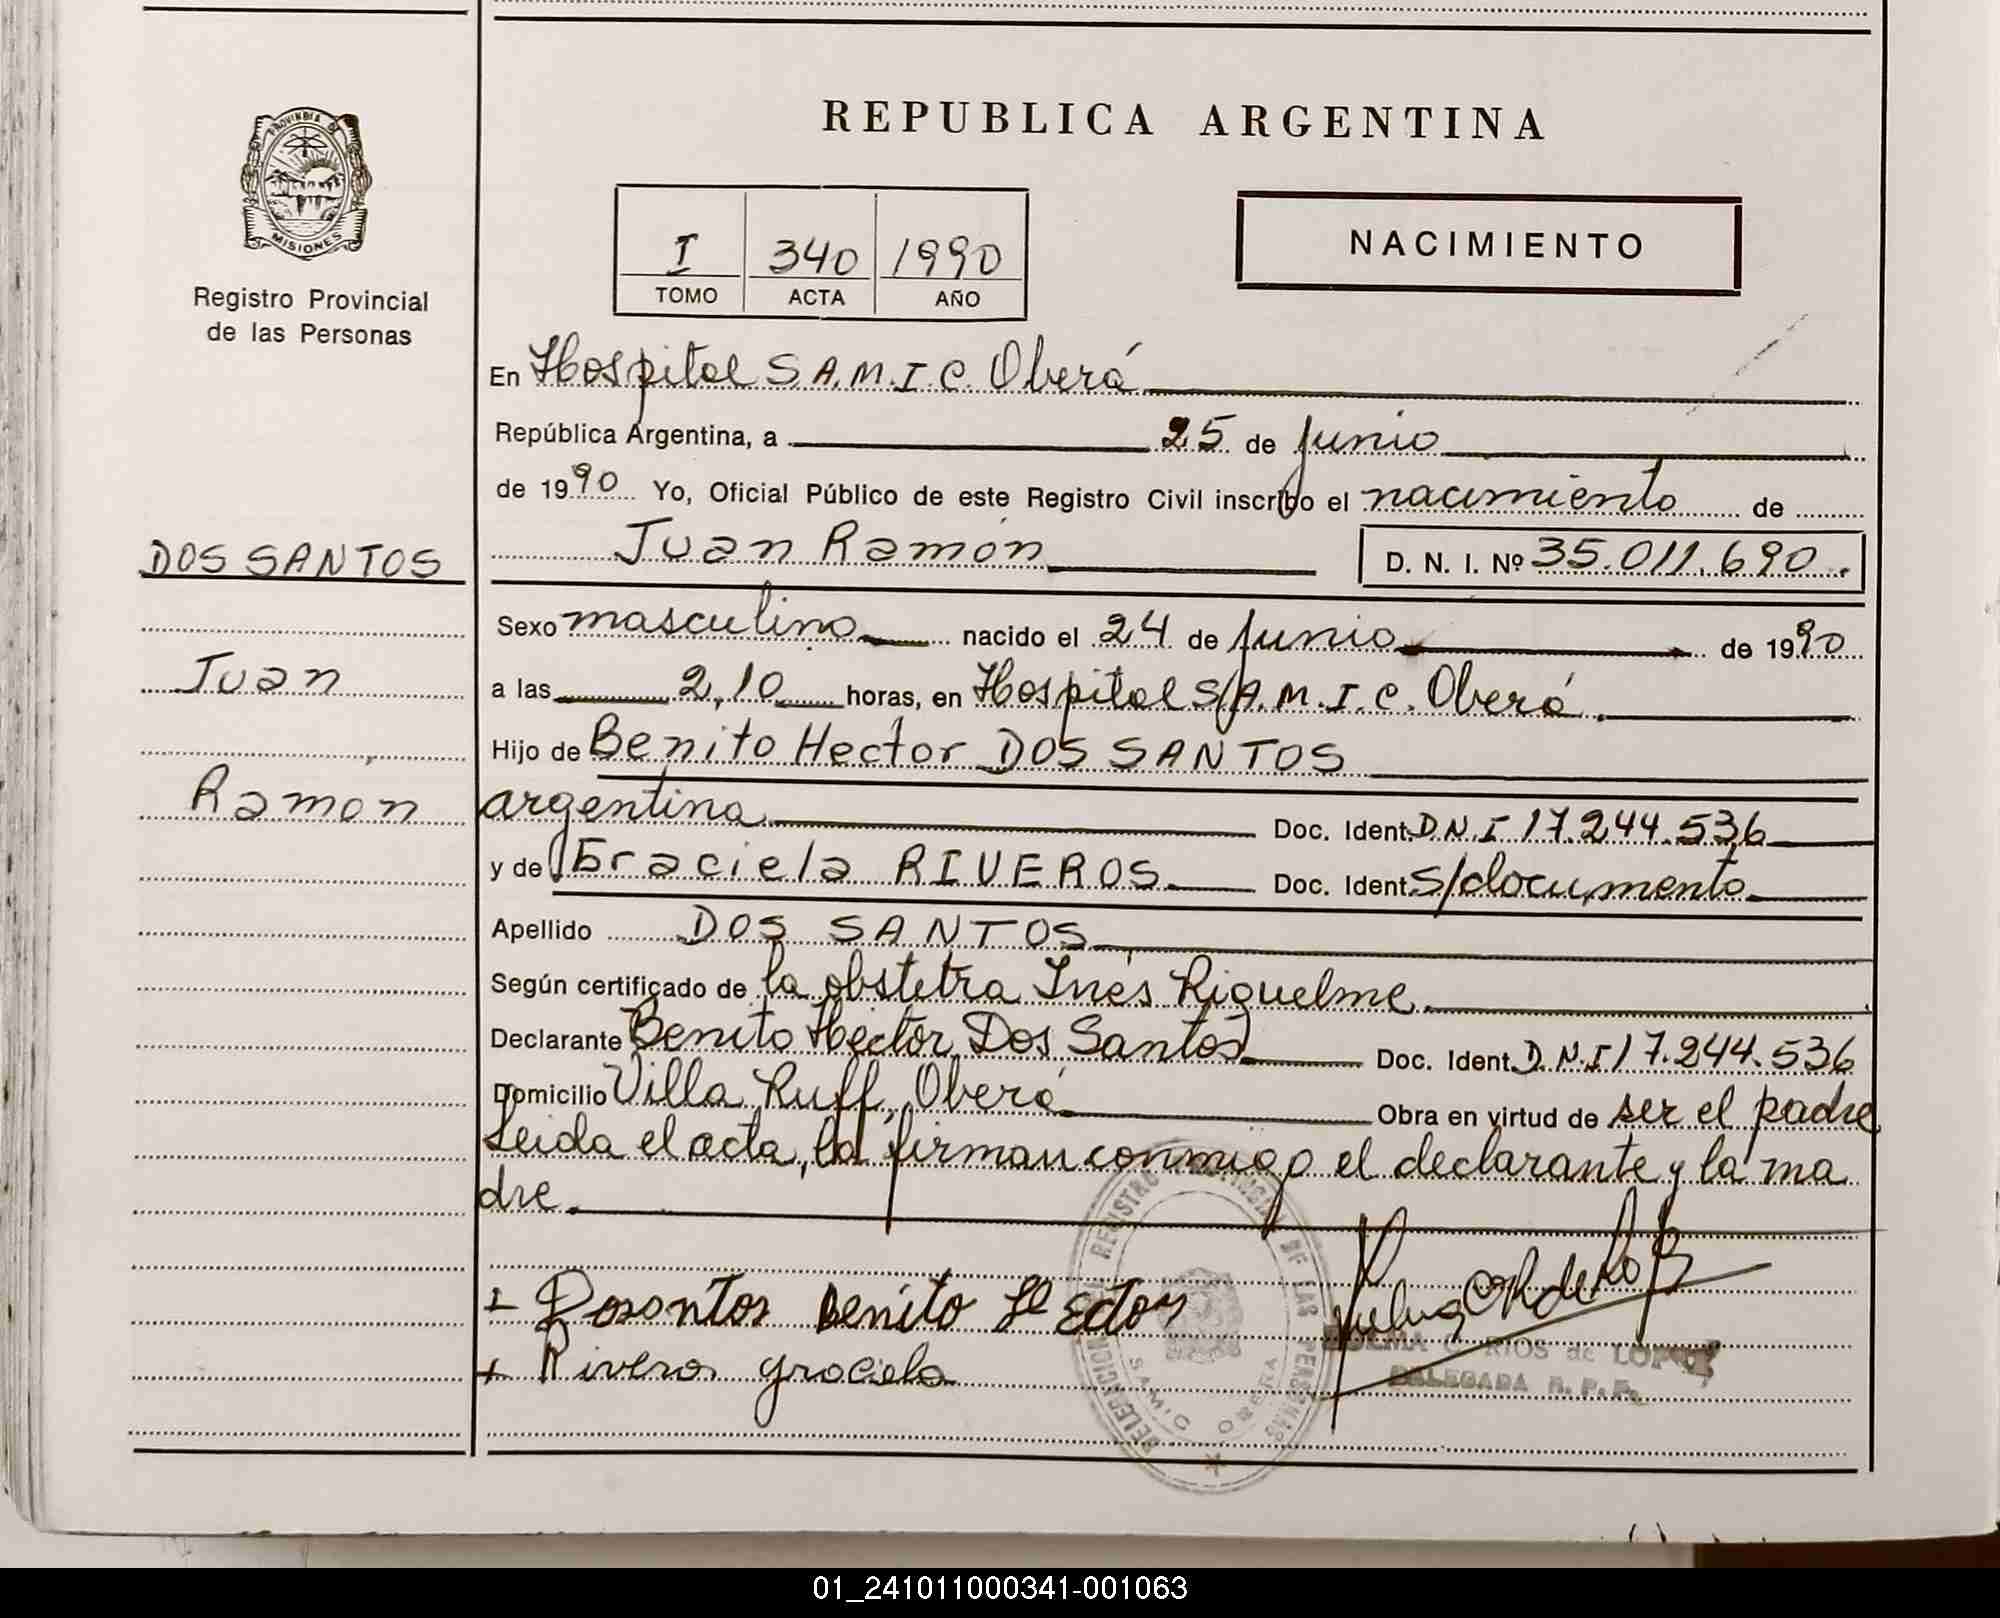 REPUBLICA ARGENTINA
PROVINCIA DE
MISIONES
Registro Provincial
de las Personas
I 340 1990
TOMO ACTA AÑO
NACIMIENTO
En Hospital S.A.M.I.C. Oberá
República Argentina, a 25 de junio
de 1990 Yo, Oficial Público de este Registro Civil inscribo el nacimiento de
Juan Ramón D. N. I. Nº 35.011.690.
DOS SANTOS
Juan
Ramón
Sexo masculino nacido el 24 de junio de 1990
a las 2,10 horas, en Hospital S.A.M.I.C. Oberá.
Hijo de Benito Hector DOS SANTOS
argentina Doc. Ident. D.N.I 17.244.536
y de Graciela RIVEROS. Doc. Ident. S/documento
Apellido DOS SANTOS
Según certificado de la obstetra Inés Riquelme.
Declarante Benito Héctor Dos Santos Doc. Ident. D.N.I 17.244.536
Domicilio Villa Ruff, Oberá Obra en virtud de ser el padre
Leida el acta, la firman conmigo el declarante y la ma
dre.
Dosantos Benito HEctor
Riveros graciela
DELEGACION REGISTRO PROVINCIAL DE LAS PERSONAS
SAMIC OBERA
RIOS de LOPEZ
DELEGADA R. P. P.
01_241011000341-001063